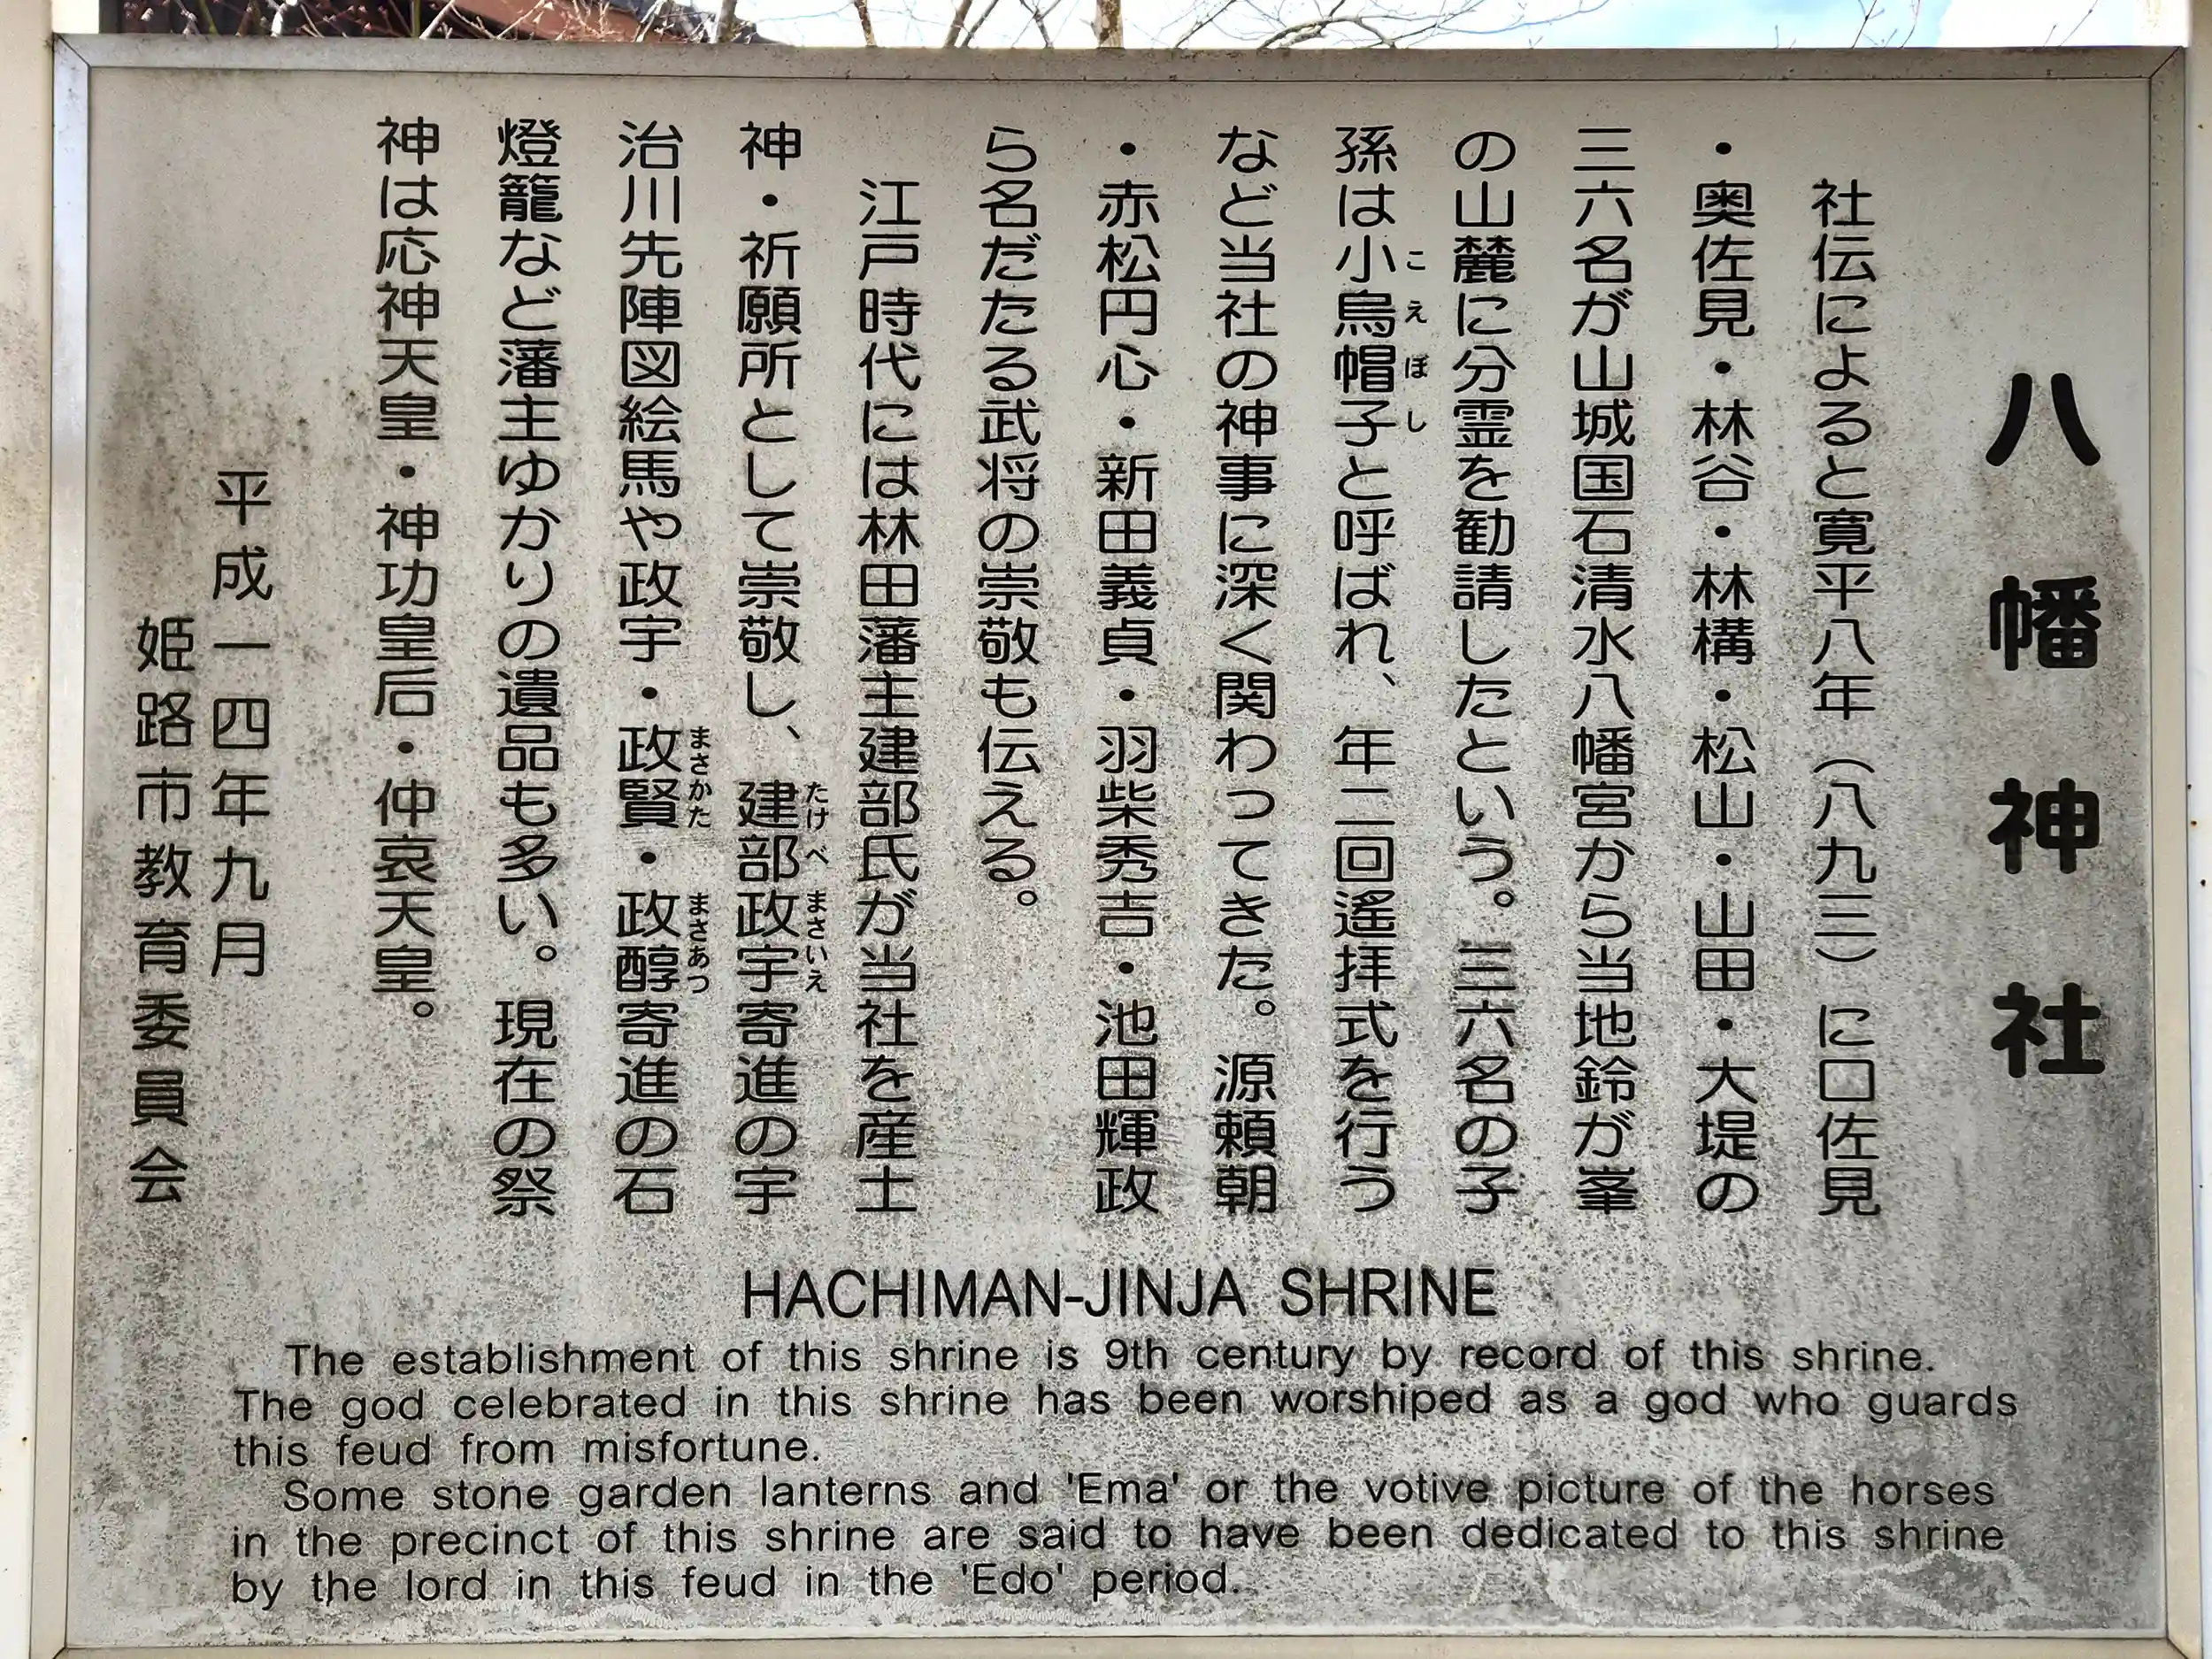 八幡神社
社伝によると寛平八年（八九三）に口佐見
・奥佐見・林谷・林構・松山・山田・大堤の
三六名が山城国石清水八幡宮から当地鈴が峯
の山麓に分霊を勧請したという。三六名の子
孫は小烏帽子と呼ばれ、年二回遥拝式を行う
こえぼし
など当社の神事に深く関わってきた。源頼朝
・赤松円心・新田義貞・羽柴秀吉・池田輝政
ら名だたる武将の崇敬も伝える。
江戸時代には林田藩主建部氏が当社を産土
神・祈願所として崇敬し、建部政宇寄進の宇
たけべまさいえ
治川先陣図絵馬や政宇・政賢・政醇寄進の石
まさかた まさあつ
燈籠など藩主ゆかりの遺品も多い。現在の祭
神は応神天皇・神功皇后・仲哀天皇。
平成一四年九月
姫路市教育委員会
HACHIMAN-JINJA SHRINE
The establishment of this shrine is 9th century by record of this shrine.
The god celebrated in this shrine has been worshiped as a god who guards
this feud from misfortune.
Some stone garden lanterns and 'Ema' or the votive picture of the horses
in the precinct of this shrine are said to have been dedicated to this shrine
by the lord in this feud in the 'Edo' period.